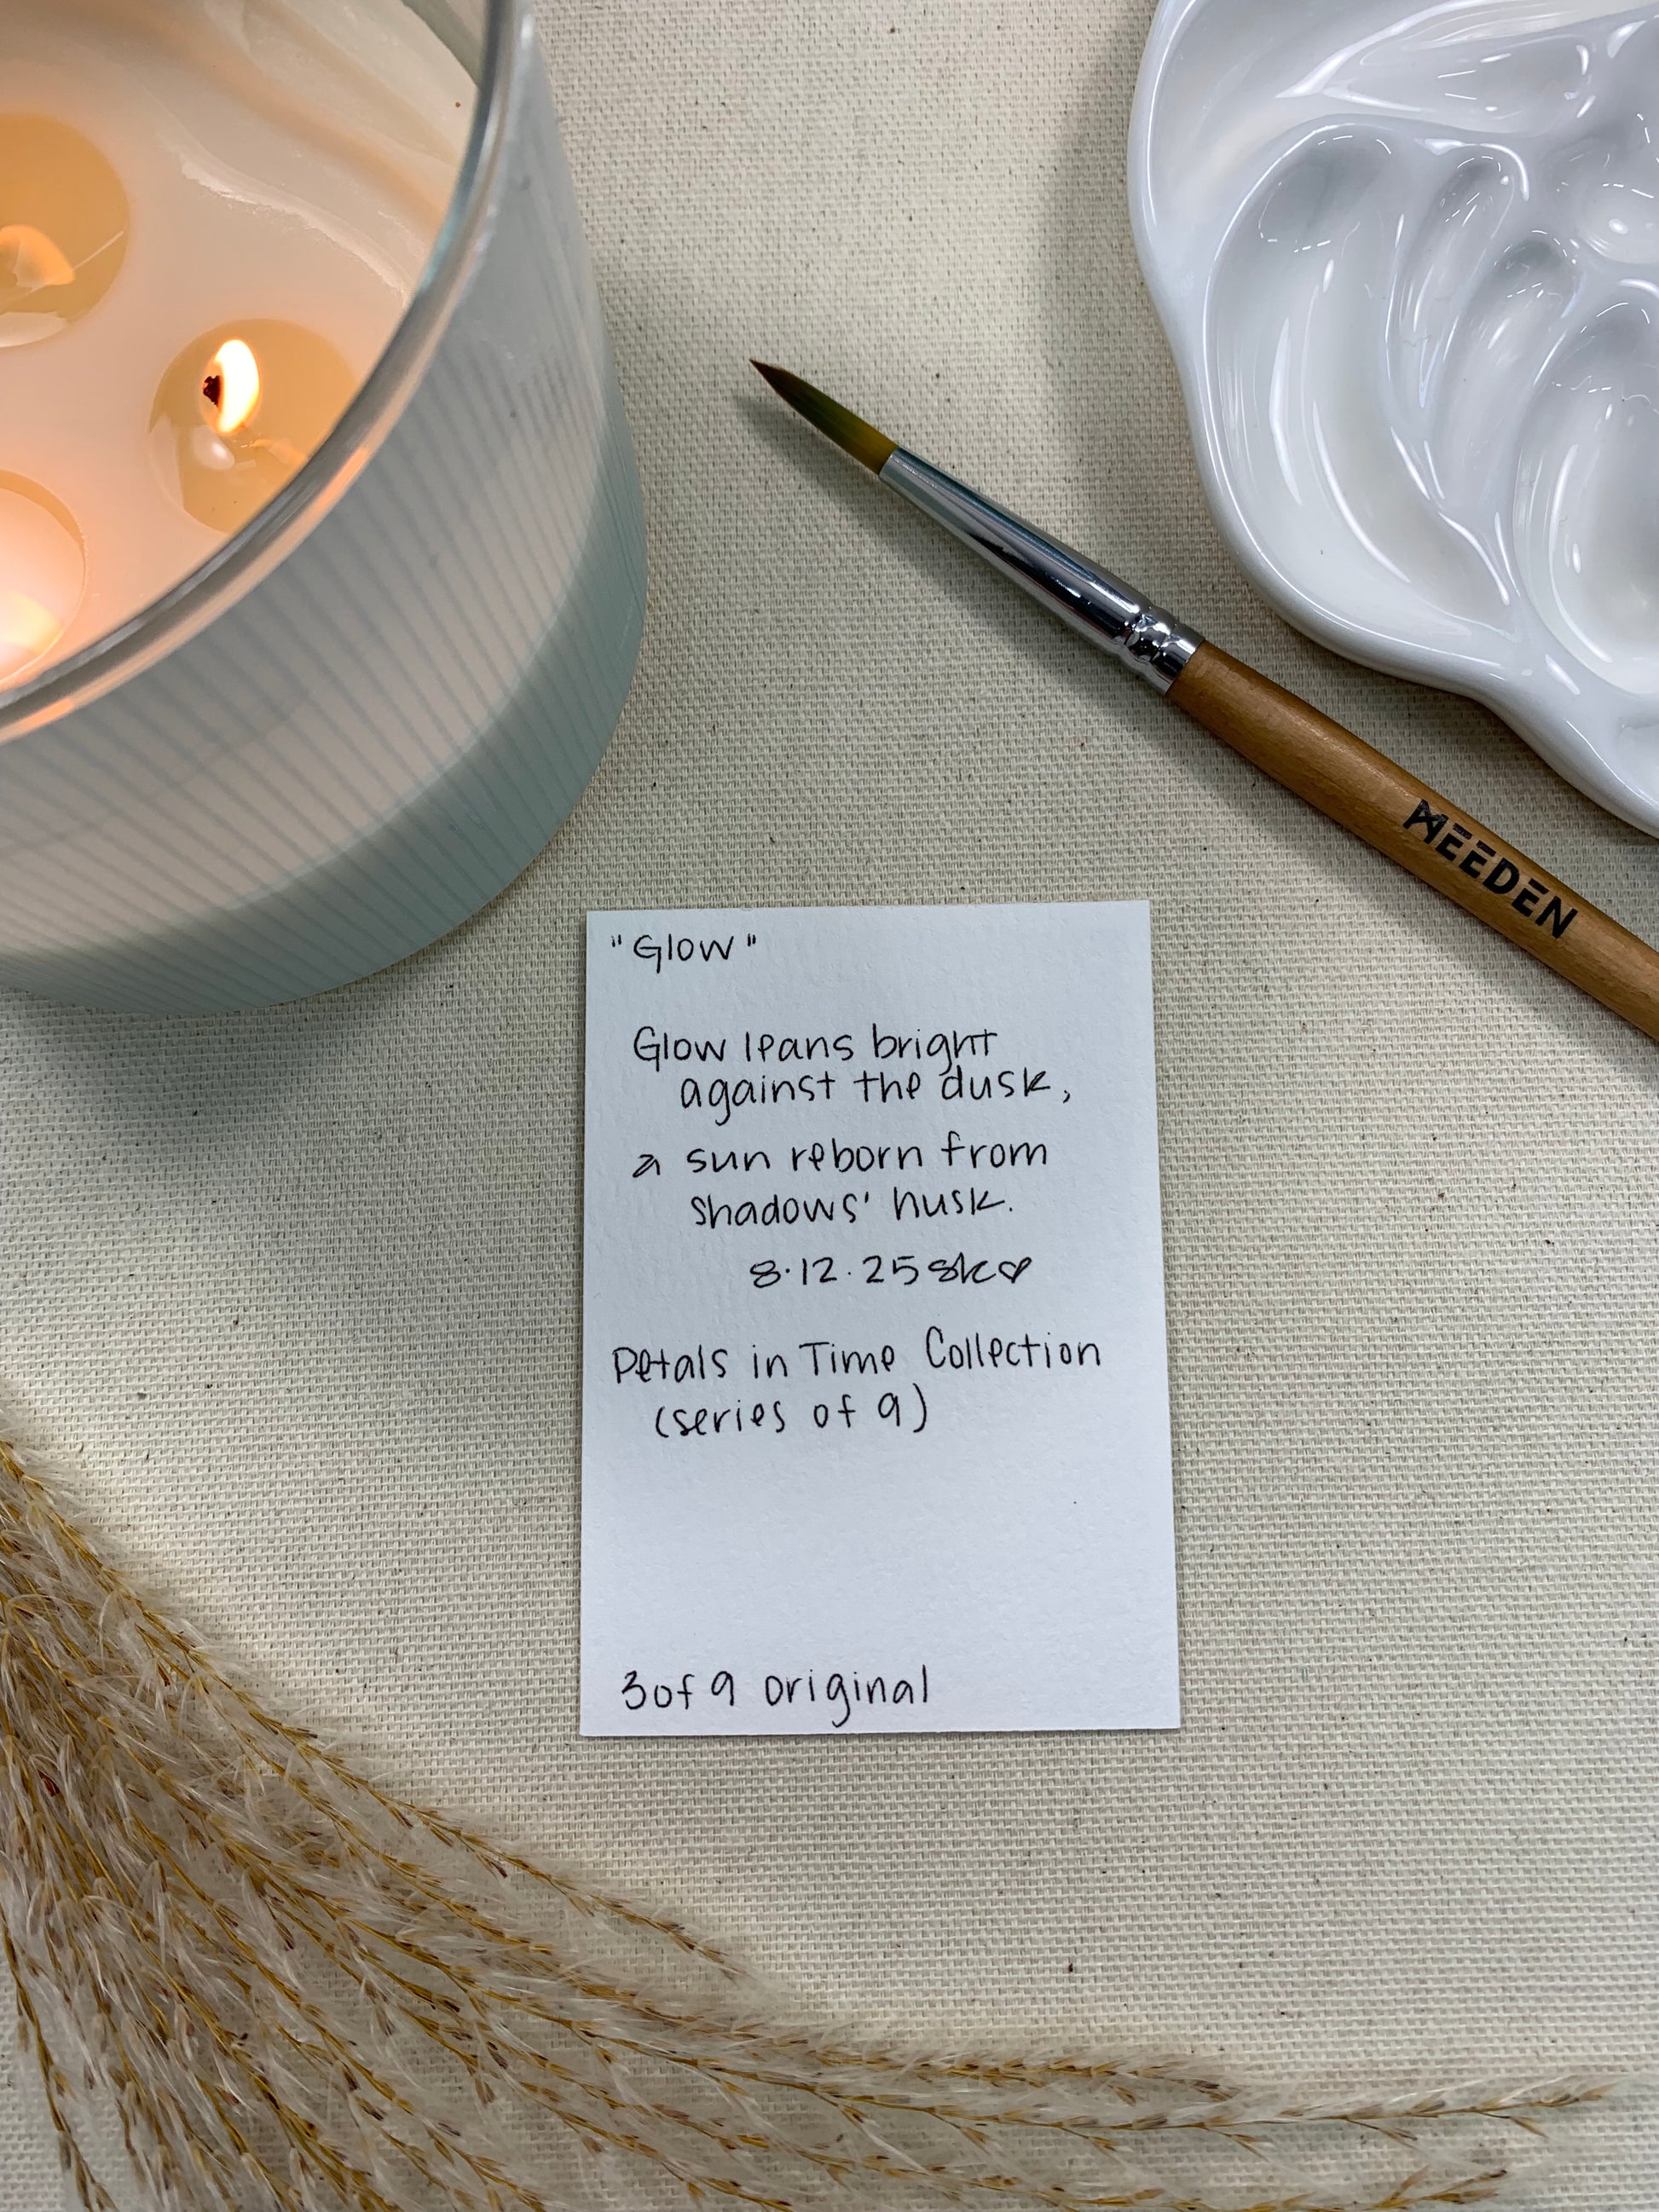 MEEDEN
"Glow"
Glow leans bright
against the dusk,
a sun reborn from
shadows' husk.
8.12.25 sk♡
Petals in Time Collection
(series of 9)
3 of 9 original